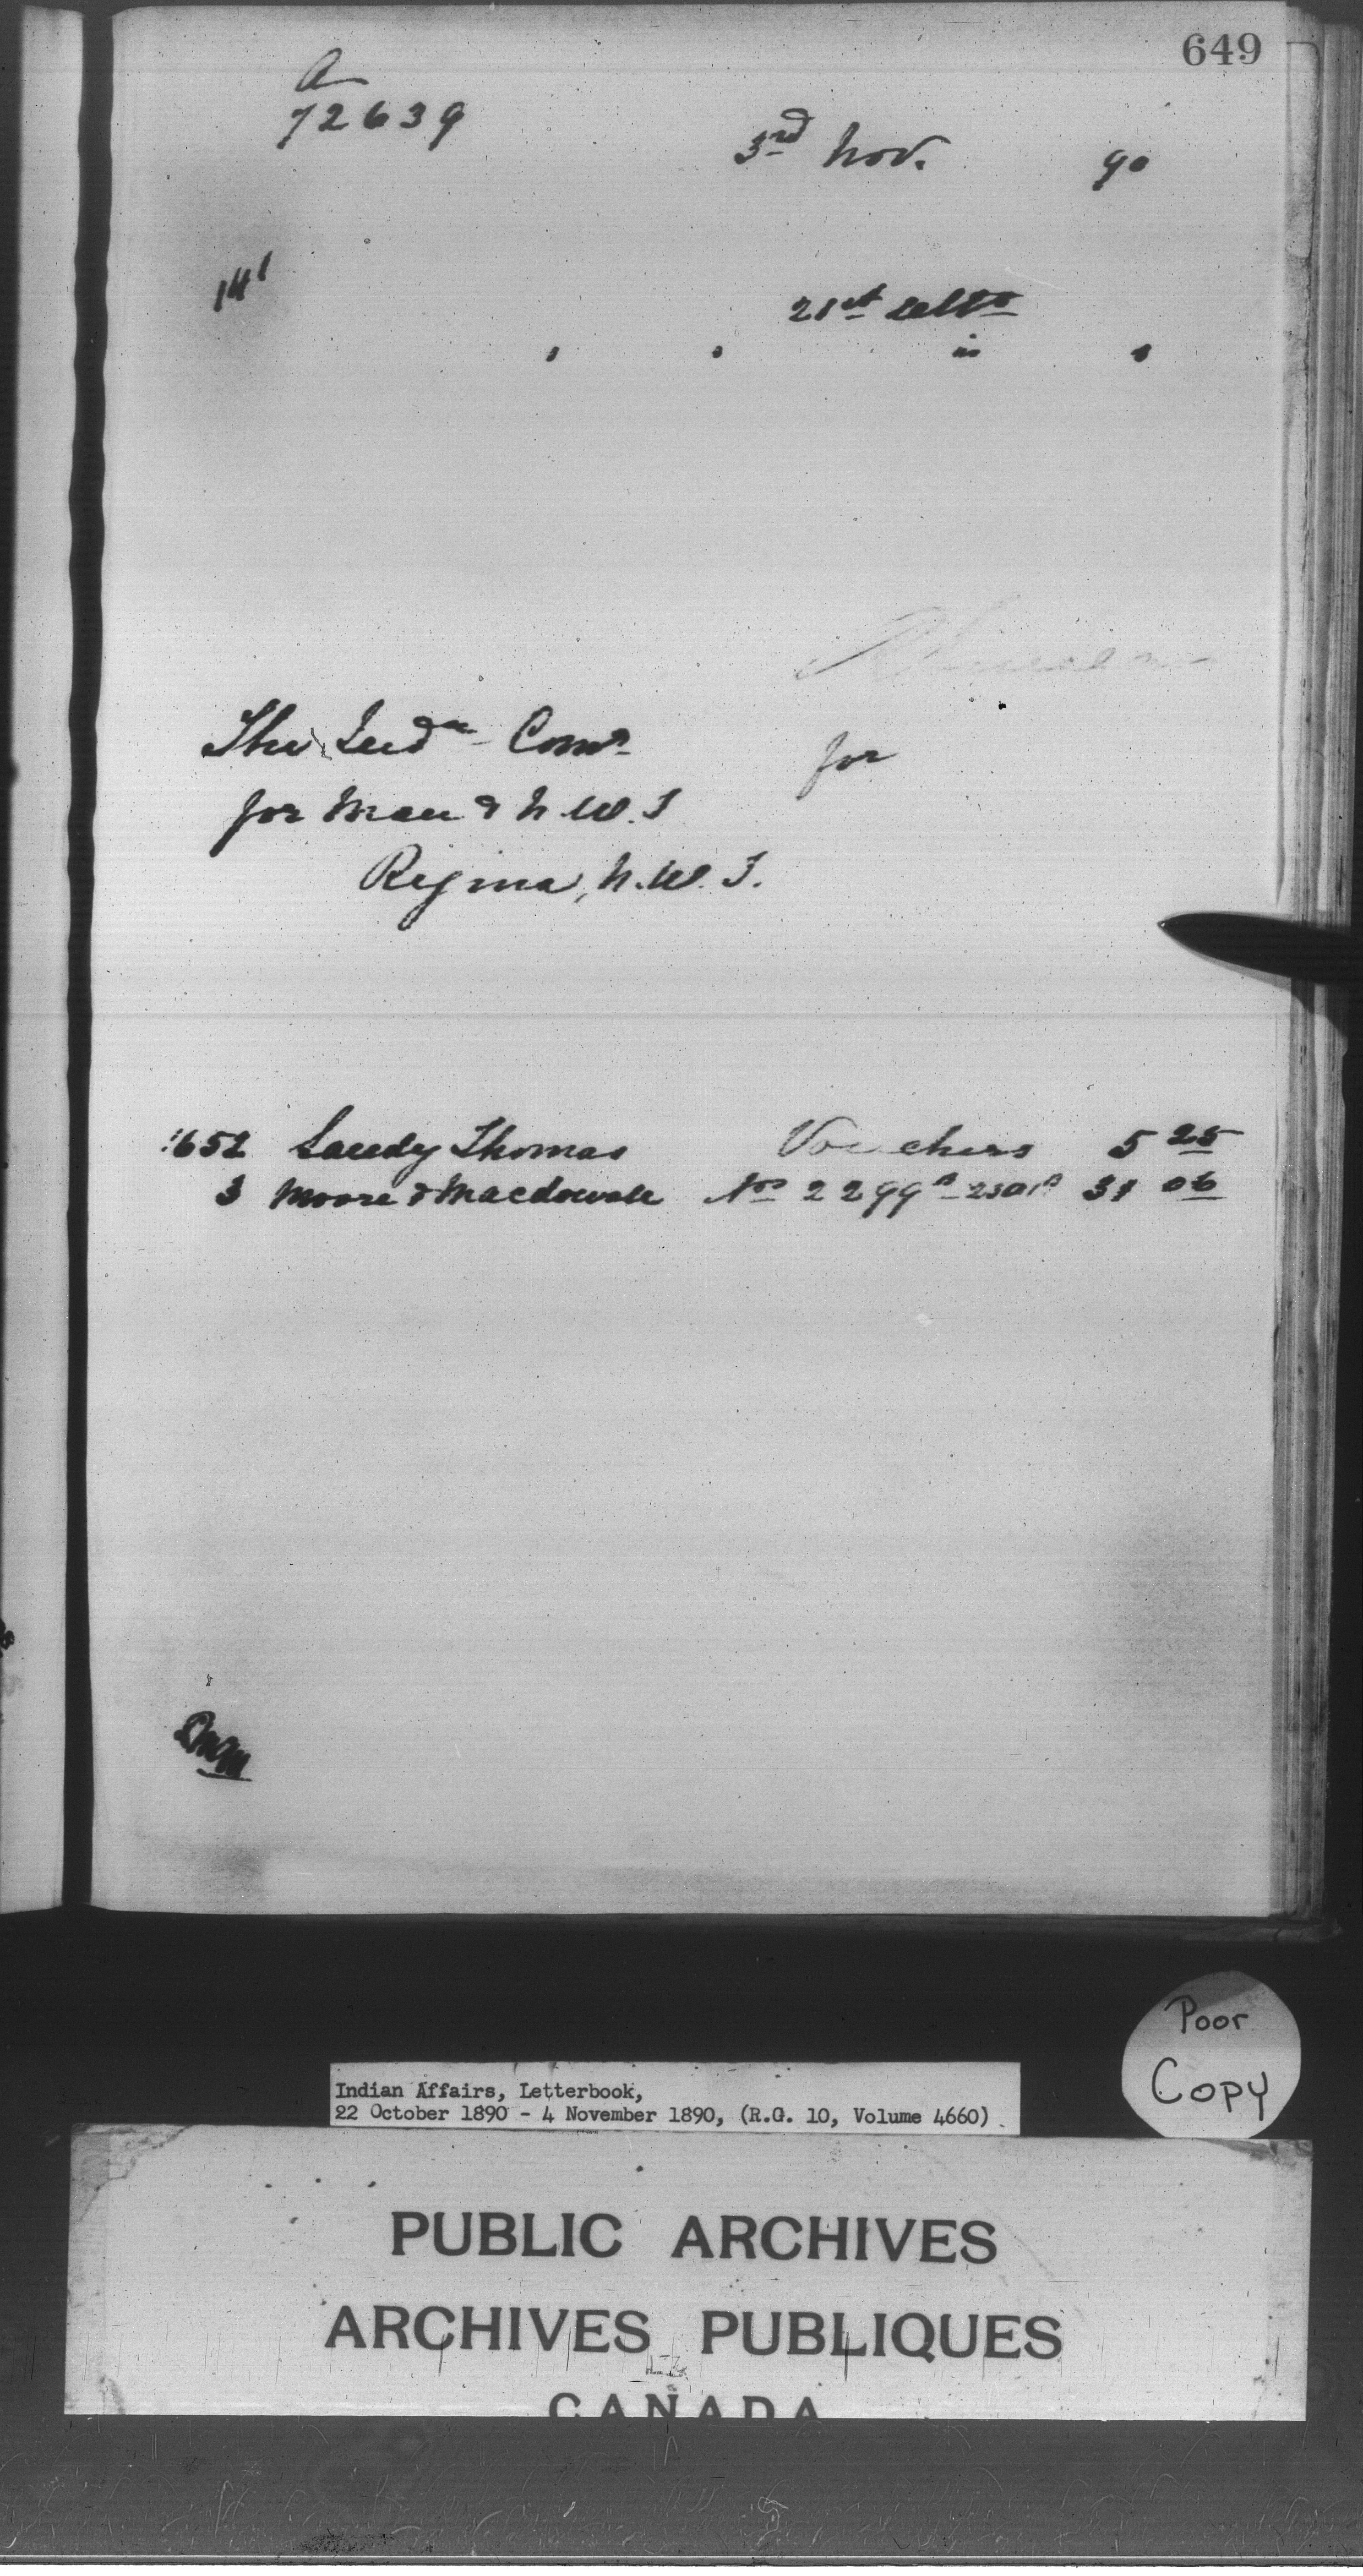 649
A
72639
3rd Nov. 90
141
21st ulto
The Indn Comr
for
for Man & N.W.T
Regina, N.W.T.
1652 Sandy Thomas Vouchers 5 25
3 Moore & Macdowall Nos 2299A 2301A 31 06
Poor
Copy
Indian Affairs, Letterbook,
22 October 1890 - 4 November 1890, (R.G. 10, Volume 4660)
PUBLIC ARCHIVES
ARCHIVES PUBLIQUES
CANADA